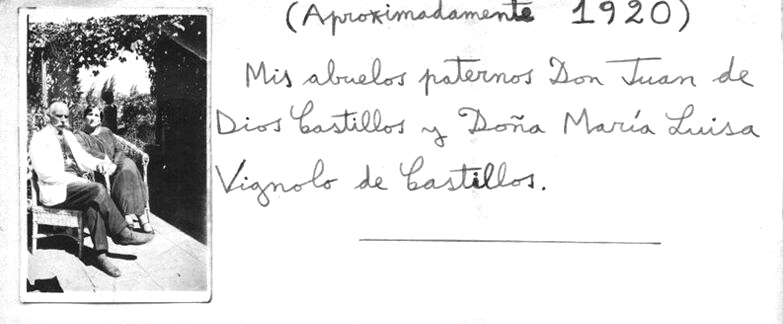 (Aproximadamente 1920)
Mis abuelos paternos Don Juan de
Dios Castillos y Doña María Luisa
Vignolo de Castillos.